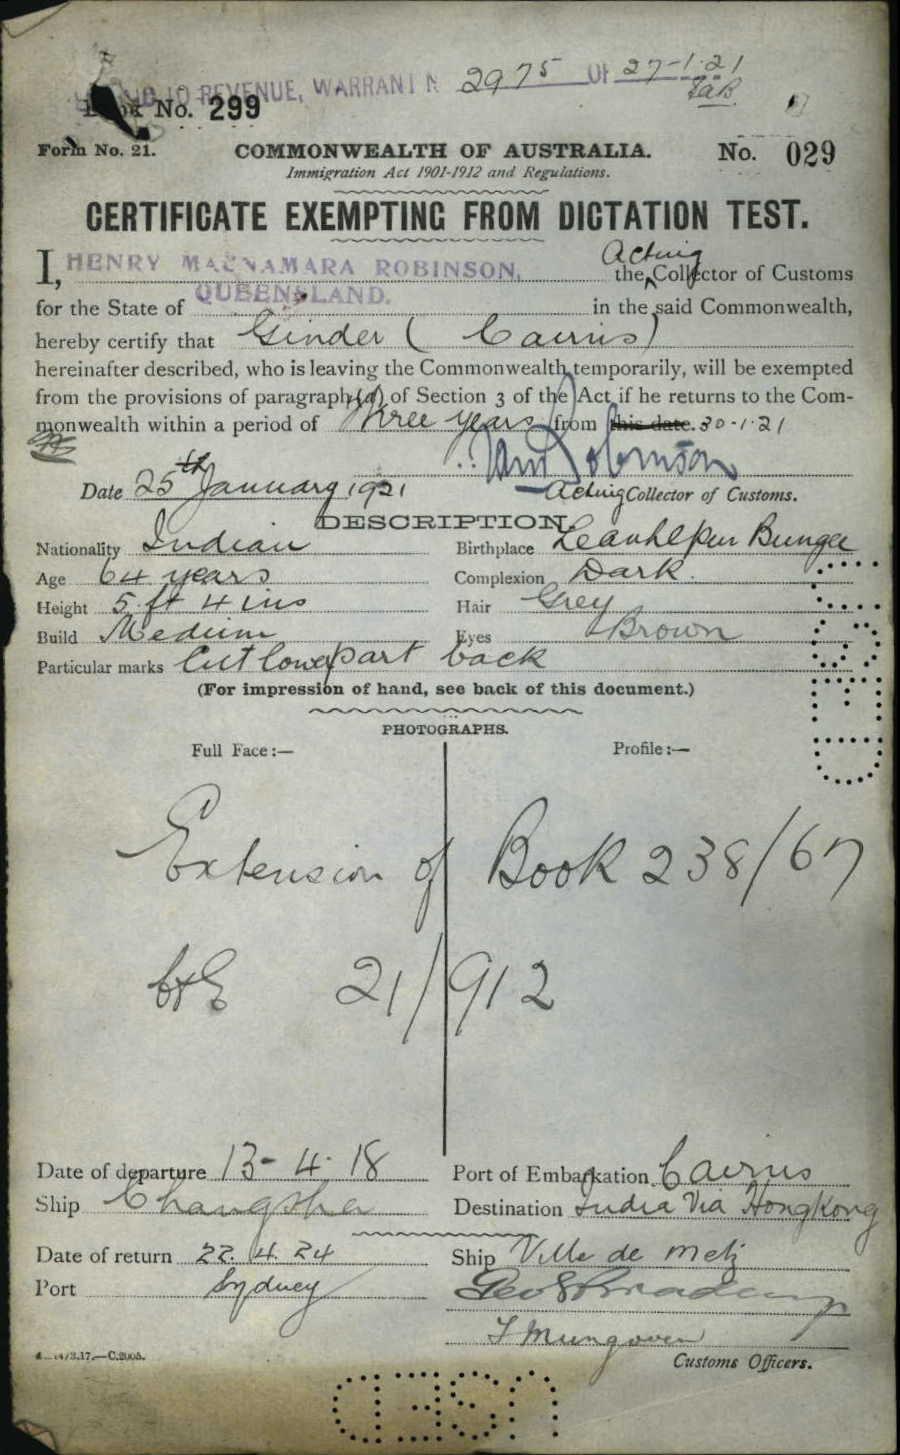 REVENUE, WARRANT N 2975 OF 27-1-21
Book No. 299
Form No. 21. COMMONWEALTH OF AUSTRALIA. No. 029
Immigration Act 1901-1912 and Regulations.
CERTIFICATE EXEMPTING FROM DICTATION TEST.
Acting
I, HENRY MACNAMARA ROBINSON, the Collector of Customs
for the State of QUEENSLAND. in the said Commonwealth,
hereby certify that Ginder ( Cairns)
hereinafter described, who is leaving the Commonwealth temporarily, will be exempted
from the provisions of paragraph (a) of Section 3 of the Act if he returns to the Com-
monwealth within a period of three years from this date. 30-1-21
Robinson
Date 25th January 1921 Acting Collector of Customs.
DESCRIPTION.
Nationality Indian Birthplace
Age 64 years Complexion Dark.
Height 5 ft 4 ins Hair Grey
Build Medium Eyes Brown
Particular marks Cut lower part back
(For impression of hand, see back of this document.)
PHOTOGRAPHS.
Full Face:— Profile:—
Extension of Book 238/67
21/912
Date of departure 13-4-18 Port of Embarkation Cairns
Ship Changsha Destination India Via HongKong
Date of return 22.4.24 Ship Ville de Metz
Port Sydney
Customs Officers.
14/3.17.—C.2005.